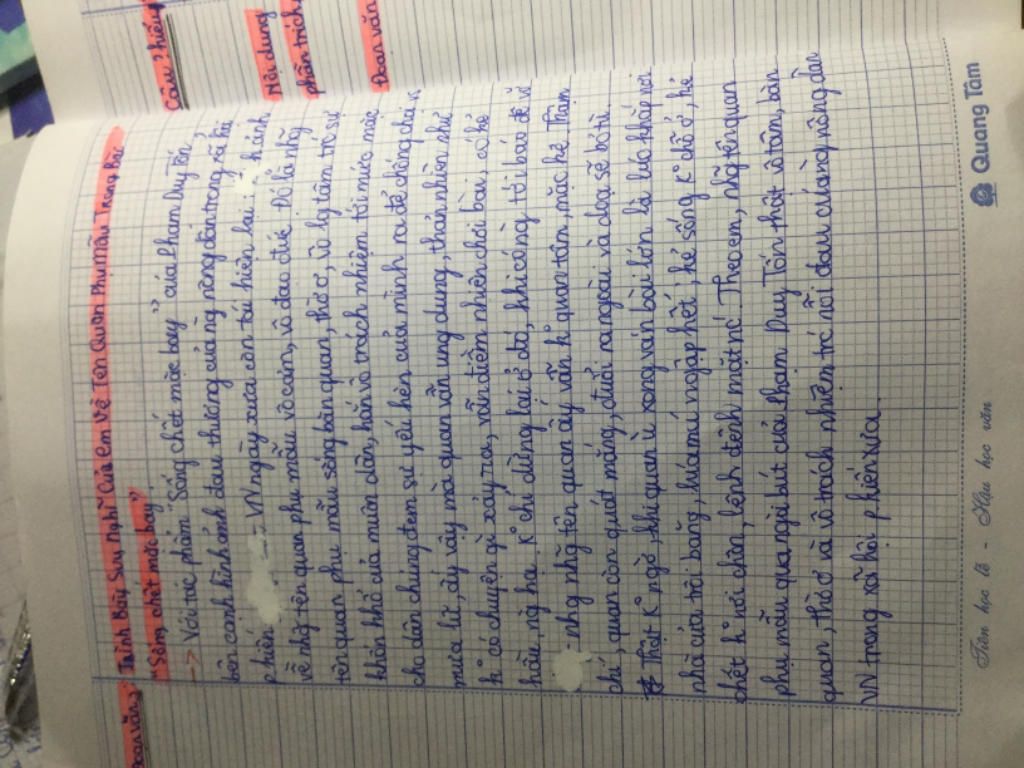 Đoạn văn: Trình Bày Suy Nghĩ Của Em Về Tên Quan Phụ Mẫu Trong Bài
"Sống chết mặc bay".
→ Với tác phẩm "Sống chết mặc bay" của Phạm Duy Tốn
bên cạnh hình ảnh đau thương của ng nông dân trong xã hội
phiến VN ngày xưa còn tái hiện lại hình ảnh
về nhg tên quan phụ mẫu vô cảm, vô đạo đức. Đó là nhg
tên quan phụ mẫu sống bàn quan, thờ ơ, vô lg tâm trc sự
khốn khổ của muôn dân, hắn vô trách nhiệm tới mức mặc
cho dân chúng đem sự yếu hèn của mình ra để chống chọi vs
mưa lũ, ấy vậy mà quan vẫn ung dung, thản nhiên như
k° có chuyện gì xảy ra, vẫn điềm nhiên chơi bài, có kẻ
hầu, ng hạ. K° chỉ dừng lại ở đó, khi có ng tới báo đê vỡ
nhg nhg tên quan ấy vẫn k° quan tâm, mặc kệ. Thậm
chí, quan còn quát mắng, đuổi ra ngoài và dọa sẽ bỏ tù.
Thật k° ngờ, khi quan ù xong ván bài lớn là lúc khắp nơi
nhà cửa trôi băng, lúa má ngập hết, kẻ sống k° chỗ ở, kẻ
chết k° nơi chôn, lênh đênh mặt nc. Theo em, nhg tên quan
phụ mẫu qua ngòi bút của Phạm Duy Tốn thật vô tâm, bàn
quan, thờ ơ và vô trách nhiệm trc nỗi đau của ng nông dân
VN trong xã hội phiến xưa.
Câu 2 hiếu
Nội dung
phần trích
Đoạn văn
Tiên học lễ - Hậu học văn
Quang Tâm